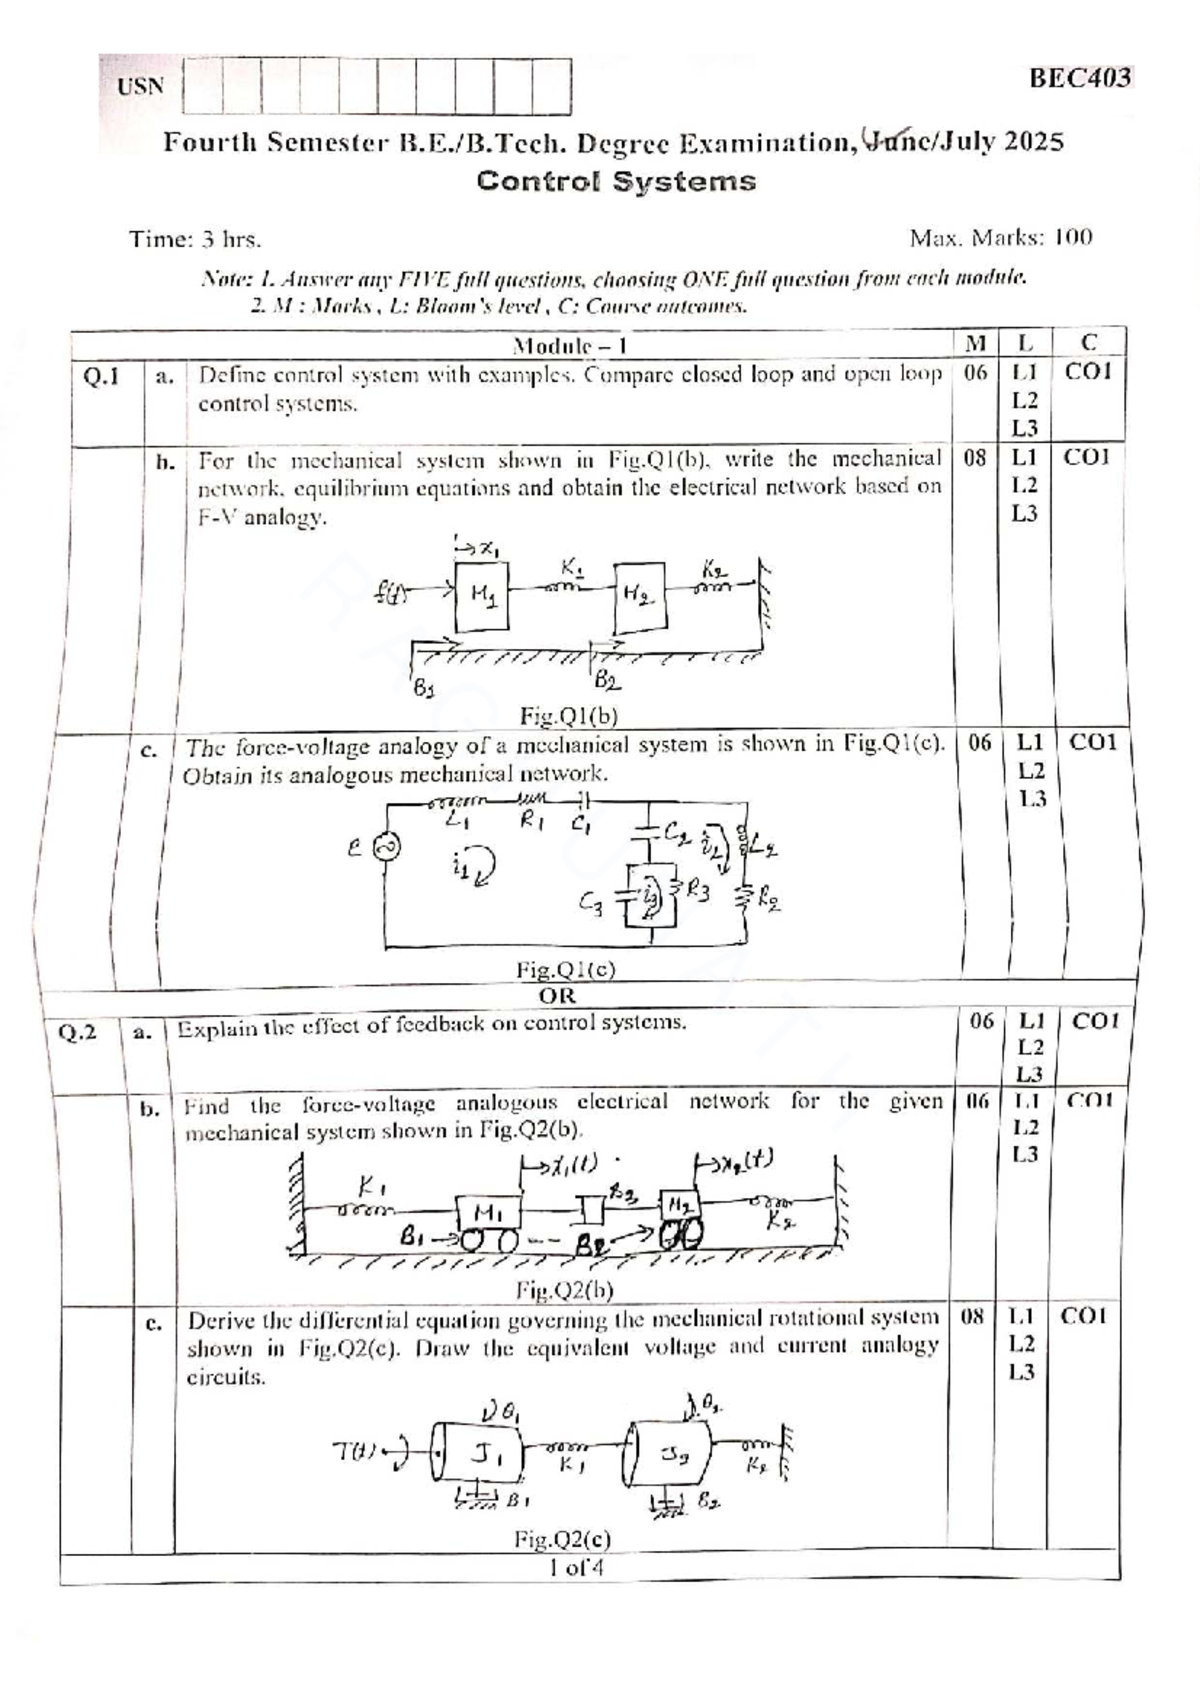 USN
BEC403
Fourth Semester B.E./B.Tech. Degree Examination, June/July 2025
Control Systems
Time: 3 hrs.
Max. Marks: 100
Note: 1. Answer any FIVE full questions, choosing ONE full question from each module.
2. M : Marks , L: Bloom's level , C: Course outcomes.
Module – 1 M L C
Q.1 a. Define control system with examples. Compare closed loop and open loop 06 L1 CO1
control systems. L2
L3
b. For the mechanical system shown in Fig.Q1(b), write the mechanical 08 L1 CO1
network, equilibrium equations and obtain the electrical network based on L2
F-V analogy. L3
x1
f(t) M1 K1 M2 K2
B1 B2
Fig.Q1(b)
c. The force-voltage analogy of a mechanical system is shown in Fig.Q1(c). 06 L1 CO1
Obtain its analogous mechanical network. L2
L3
L1 R1 C1
e i1 C2 i2 L2
C3 i3 R3 R2
Fig.Q1(c)
OR
Q.2 a. Explain the effect of feedback on control systems. 06 L1 CO1
L2
L3
b. Find the force-voltage analogous electrical network for the given 06 L1 CO1
mechanical system shown in Fig.Q2(b). L2
L3
x1(t) x2(t)
K1 M1 B3 M2 K2
B1 B2
Fig.Q2(b)
c. Derive the differential equation governing the mechanical rotational system 08 L1 CO1
shown in Fig.Q2(c). Draw the equivalent voltage and current analogy L2
circuits. L3
θ1 θ2
T(t) J1 K1 J2 K2
B1 B2
Fig.Q2(c)
1 of 4